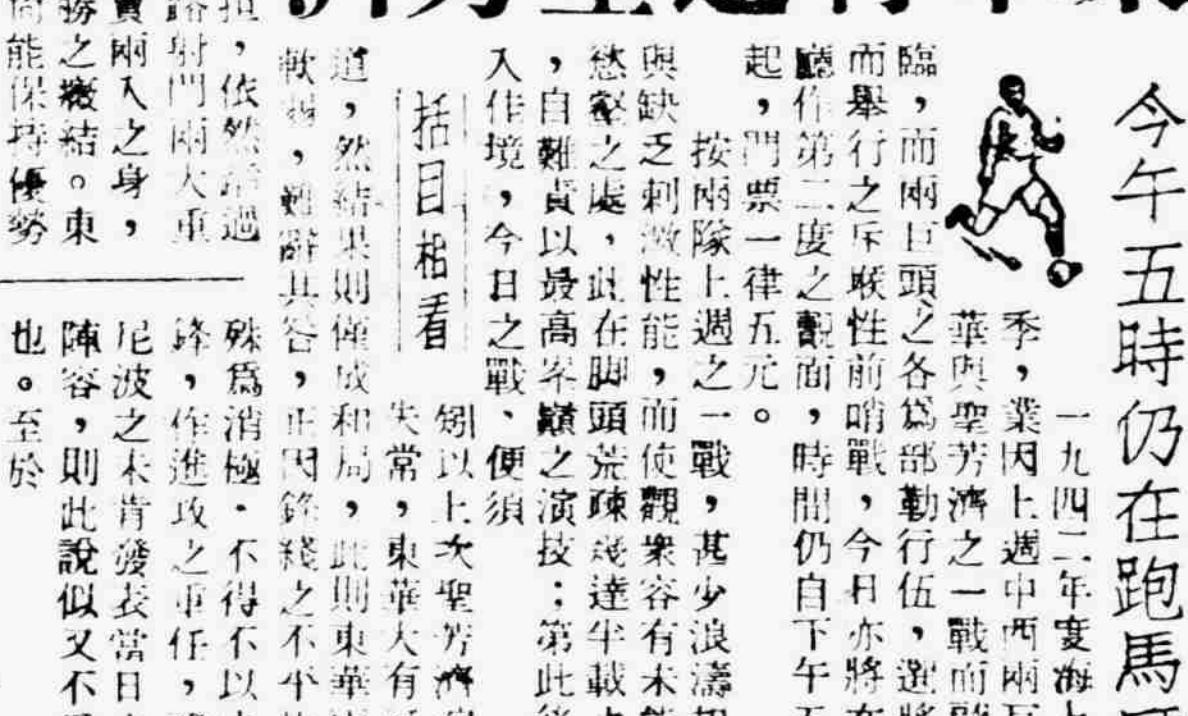 今午五時仍在跑馬
一九四二年度海
季，業因上週中西兩
華與聖芳濟之一戰而
臨，而兩巨頭之各爲部勤行伍，選將
而舉行之斥堠性前哨戰，今日亦將在
廳作第二度之覿面，時間仍自下午五
起，門票一律五元。
按兩隊上週之一戰，甚少浪濤
與缺乏刺激性能，而使觀衆容有未能
慾壑之處，此在脚頭荒疎幾達半載
，自難責以最高峯巔之演技；第此後
入作境，今日之戰、便須
括目相看
矧以上次聖芳濟
失常，東華大有
道，然結果則僅成和局，此則東華
軟弱，難辭其咎，正因鋒綫之不平
担，依然
路射門兩大重
賓兩入之身，
勝之癥結。東
尚能保持優勢
殊爲消極．不得不以
鋒，作進攻之重任，
尼波之未肯發表當日
陣容，則此說似又不
也。至於